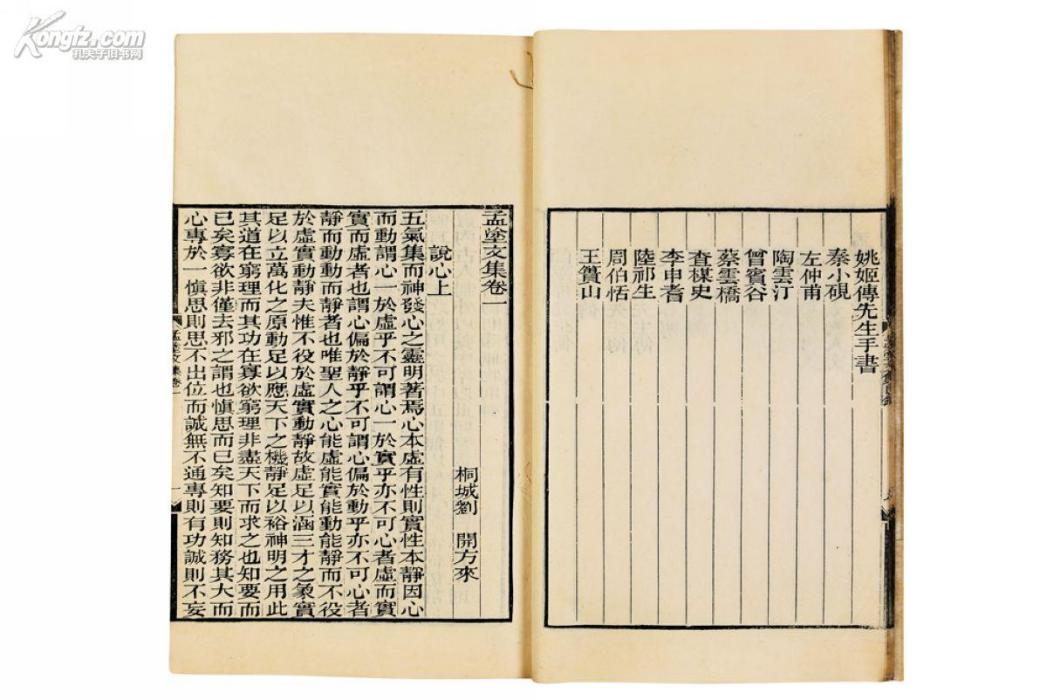 Kongfz.com
孔夫子旧书网
姚姬傳先生手書
秦小硯
左仲甫
陶雲汀
曾賓谷
蔡雲橋
查楳史
李申耆
陸祁生
周伯恬
王簣山
孟塗文集卷一
桐城劉 開方來
說心上
五氣集而神發心之靈明著焉心本虛有性則實性本靜因心
而動謂心一於虛乎不可謂心一於實乎亦不可心者虛而實
實而虛者也謂心偏於靜乎不可謂心偏於動乎亦不可心者
靜而動動而靜者也唯聖人之心能虛能實能動能靜而不役
於虛實動靜夫惟不役於虛實動靜故虛足以涵三才之象實
足以立萬化之原動足以應天下之機靜足以裕神明之用此
其道在窮理而其功在寡欲窮理非盡天下而求之也知要而
已矣寡欲非僅去邪之謂也愼思而已矣知要則知務其大而
心專於一愼思則思不出位而誠無不通專則有功誠則不妄
孟塗文集卷一
一